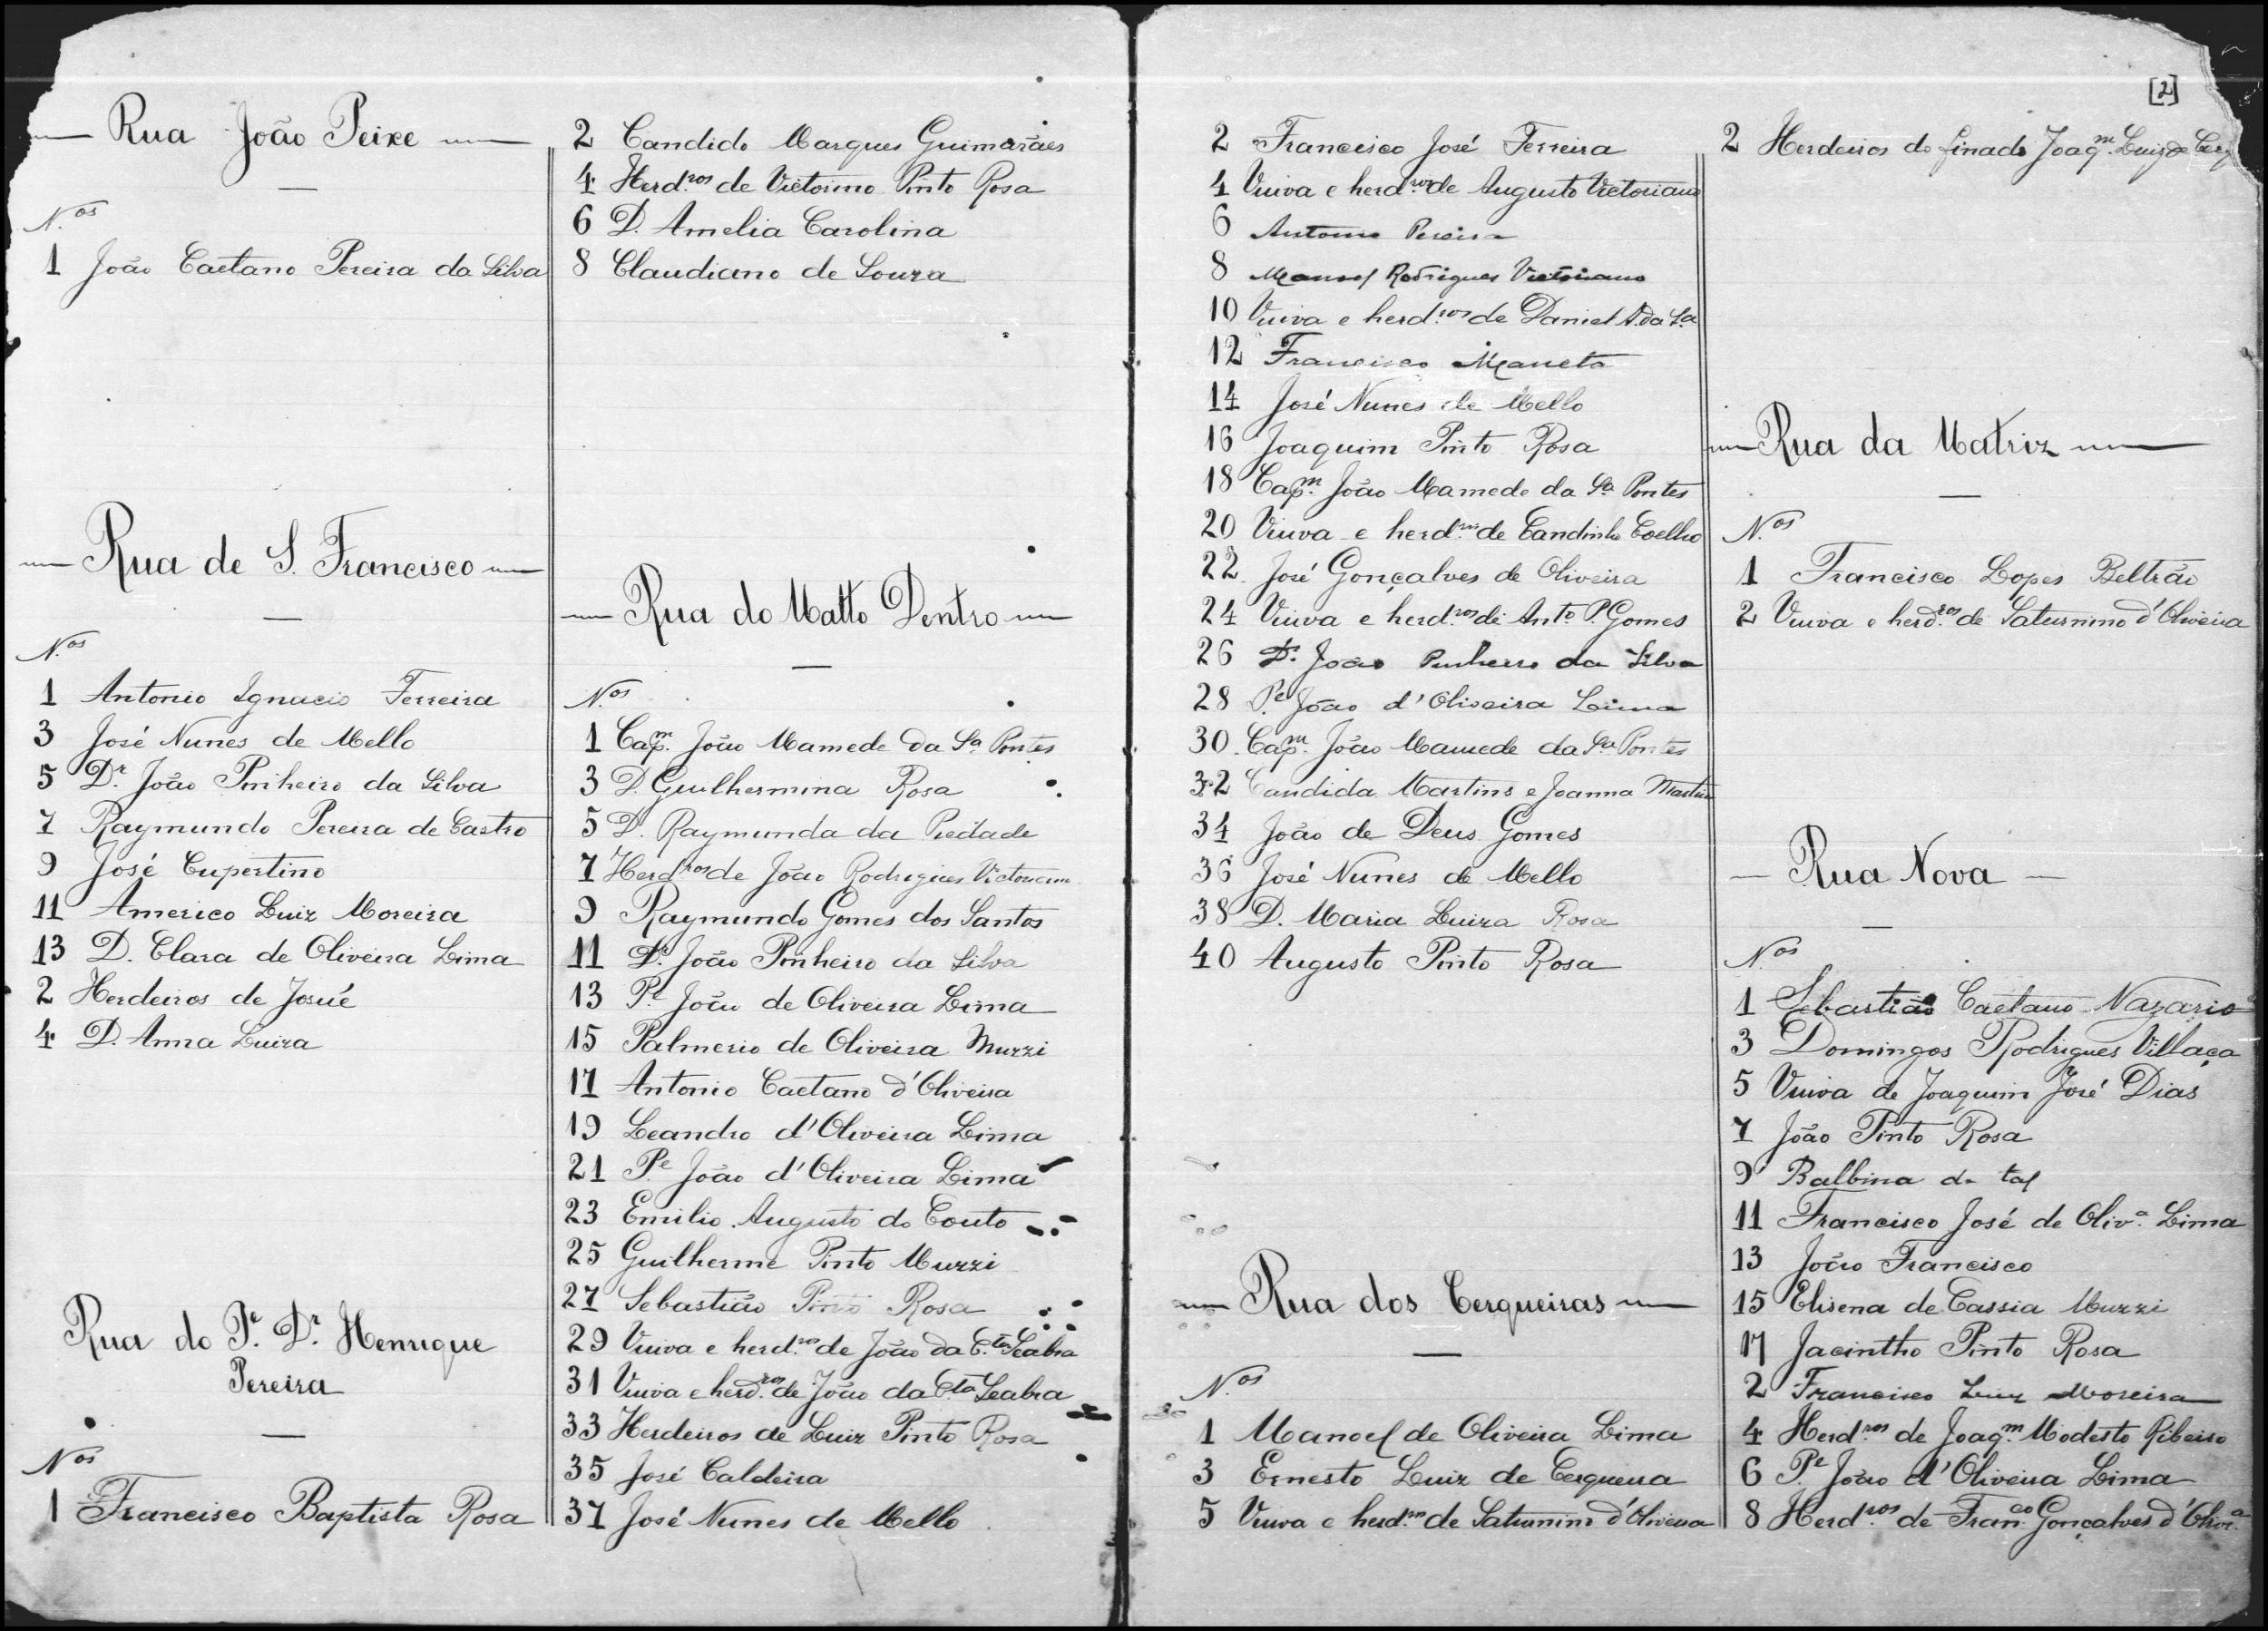 — Rua João Peixe —
N.os
1 João Caetano Pereira da Silva
— Rua de S. Francisco —
N.os
1 Antonio Ignacio Ferreira
3 José Nunes de Mello
5 Dr. João Pinheiro da Silva
7 Raymundo Pereira de Castro
9 José Cupertino
11 Americo Luiz Moreira
13 D. Clara de Oliveira Lima
2 Herdeiros de Josué
4 D. Anna Luiza
Rua do Pr. Dr. Henrique
Pereira
Nos
1 Francisco Baptista Rosa
2 Candido Marques Guimarães
4 Herd.ros de Victorino Pinto Rosa
6 D. Amelia Carolina
8 Claudiano de Souza
— Rua do Matto Dentro —
N.os
1 Cap.m João Mamede da S.a Pontes
3 D. Guilhermina Rosa
5 D. Raymunda da Piedade
7 Herd.ros de João Rodrigues Victoriano
9 Raymundo Gomes dos Santos
11 Dr. João Pinheiro da Silva
13 P.e João de Oliveira Lima
15 Palmerio de Oliveira Murzi
17 Antonio Caetano d'Oliveira
19 Leandro d'Oliveira Lima
21 P.e João d'Oliveira Lima
23 Emilio Augusto do Couto
25 Guilherme Pinto Murzi
27 Sebastião Pinto Rosa
29 Viuva e herd.ros de João da C.ta Seabra
31 Viuva e herd.ros de João da C.ta Seabra
33 Herdeiros de Luiz Pinto Rosa
35 José Caldeira
37 José Nunes de Mello
[2]
2 Francisco José Ferreira
4 Viuva e herd.ros de Augusto Victoriano
6 Antonio Pereira
8 Manoel Rodrigues Victoriano
10 Viuva e herd.ros de Daniel A. da S.a
12 Francisco Maneta
14 José Nunes de Mello
16 Joaquim Pinto Rosa
18 Cap.m João Mamede da S.a Pontes
20 Viuva e herd.ros de Candinho Coelho
22 José Gonçalves de Oliveira
24 Viuva e herd.ros de Ant.o P. Gomes
26 Dr. João Pinheiro da Silva
28 P.e João d'Oliveira Lima
30 Cap.m João Mamede da S.a Pontes
32 Candida Martins e Joanna Martins
34 João de Deus Gomes
36 José Nunes de Mello
38 D. Maria Luiza Rosa
40 Augusto Pinto Rosa
— Rua dos Cerqueiras —
N.os
1 Manoel de Oliveira Lima
3 Ernesto Luiz de Cerqueira
5 Viuva e herd.ros de Saturnino d'Oliveira
2 Herdeiros do finado Joaq.m Luiz de
— Rua da Matriz —
N.os
1 Francisco Lopes Beltrão
2 Viuva e herd.ros de Saturnino d'Oliveira
— Rua Nova —
N.os
1 Sebastião Caetano Nazario
3 Domingos Rodrigues Villaça
5 Viuva de Joaquim José Dias
7 João Pinto Rosa
9 Balbina de tal
11 Francisco José de Oliv.a Lima
13 João Francisco
15 Elisena de Cassia Murzi
17 Jacintho Pinto Rosa
2 Francisco Luiz Moreira
4 Herd.ros de Joaq.m Modesto Ribeiro
6 P.e João d'Oliveira Lima
8 Herd.ros de Fran.co Gonçalves d'Oliv.a